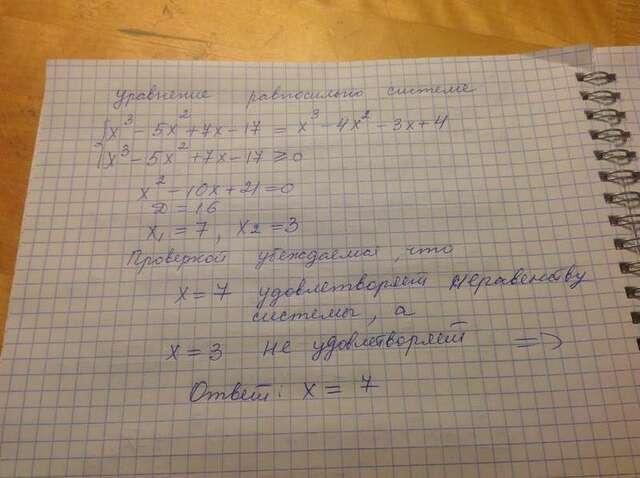 Уравнение равносильно системе
x³ - 5x² + 7x - 17 = x³ - 4x² - 3x + 4
x³ - 5x² + 7x - 17 ≥ 0
x² - 10x + 21 = 0
D = 16
x₁ = 7, x₂ = 3
Проверкой убеждаемся, что
x = 7 удовлетворяет неравенству
системы, а
x = 3 не удовлетворяет =>
Ответ: x = 7